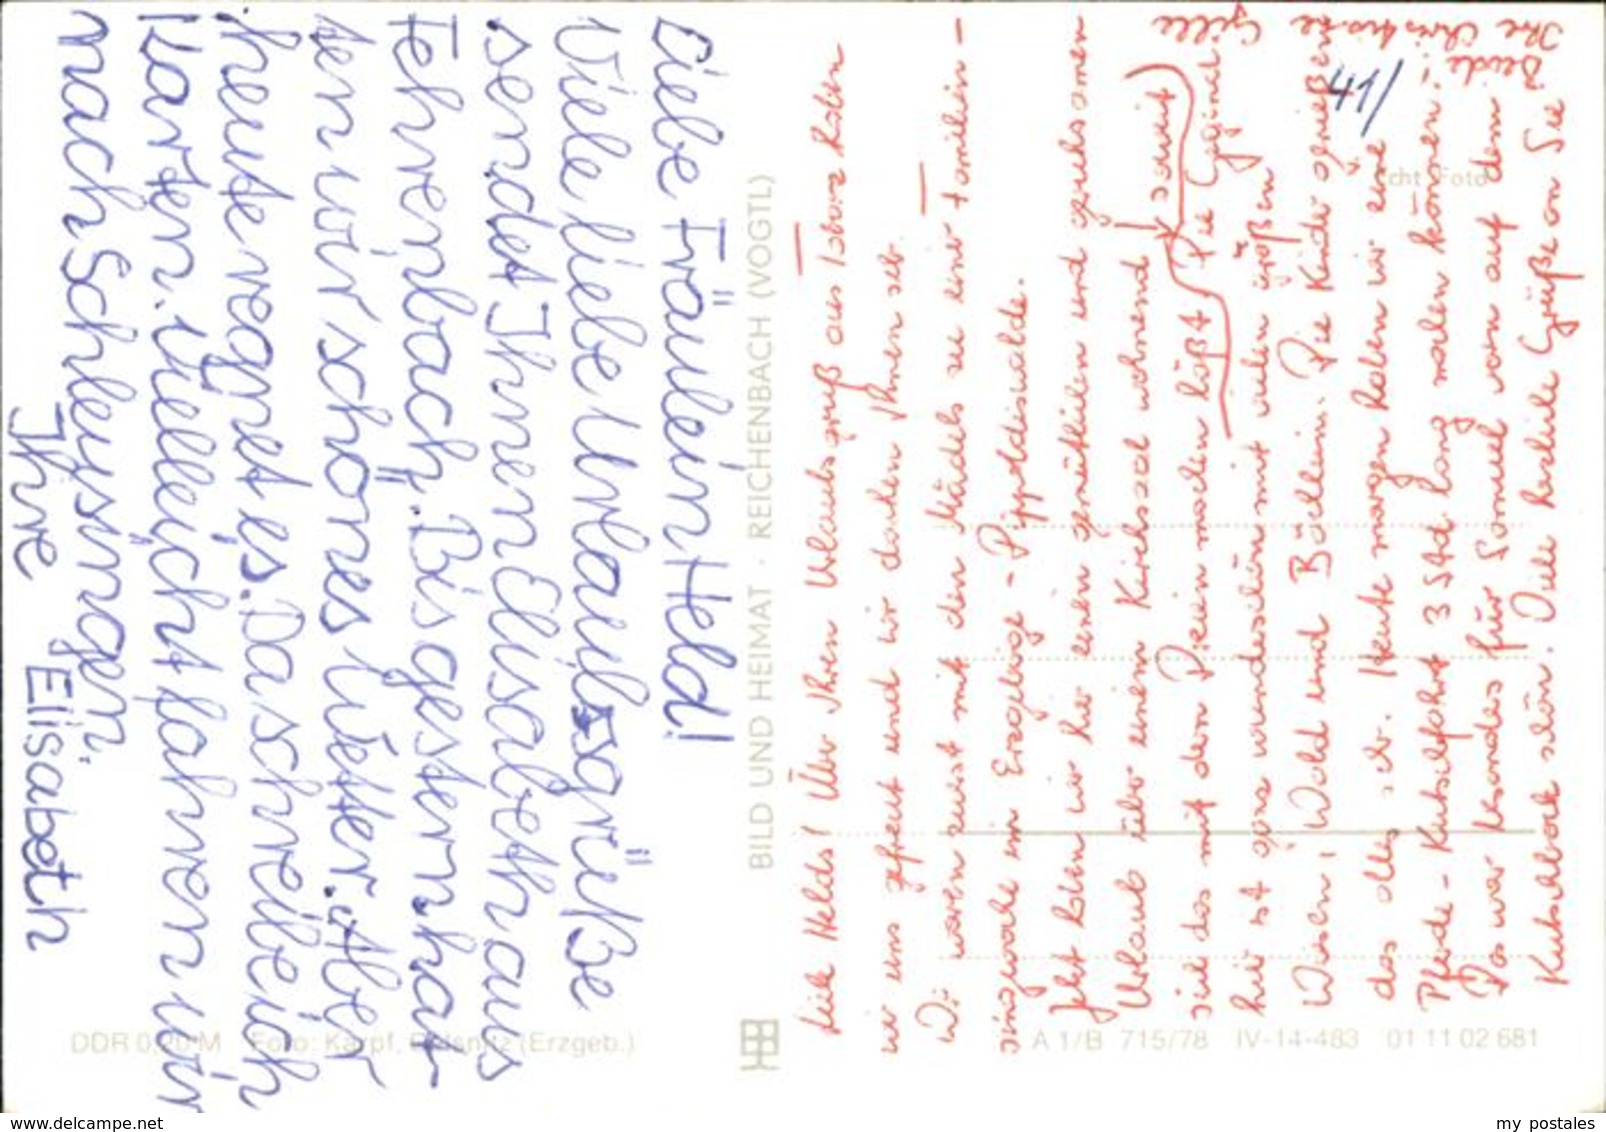 Liebe Fräulein Held!
Viele liebe Urlaubsgrüße
sendet Ihnen Elisabeth aus
Fehrenbach. Bis gestern hat
ten wir schönes Wetter. Aber
heute regnet es. Da schreibe ich
Karten. Vielleicht fahren wir
nach Schleusingen.
Ihre Elisabeth
BILD UND HEIMAT · REICHENBACH (VOGTL)
DDR 0,20 M Foto: Karpf, (Erzgeb.)
A 1/B 715/78 IV-14-483 01 11 02 681
Echt Foto
41/
Liebe Helds! Über Ihren Urlaubsgruß aus haben
wir uns gefreut und wir danken Ihnen sehr.
Wir waren zuerst mit den Mädels zu einer Familien-
singwoche im Erzgebirge - Pöppeldiswalde.
Jetzt haben wir hier einen gemütlichen und geruhsamen
Urlaub über einem Kirchsaal wohnend, soweit
sich das mit den Dreien machen läßt. Die Gegend
hier ist ganz wunderschön mit vielen großen
Wiesen, Wald und Bächlein. Die Kinder genießen
das alles sehr. Heute morgen haben wir eine
Pferde-Kutschfahrt 3 Std. lang machen können!
Das war besonders für Samuel vorn auf dem
Kutschbock schön. Viele herzliche Grüße an Sie
Beide!
Ihre Christiane
Gille